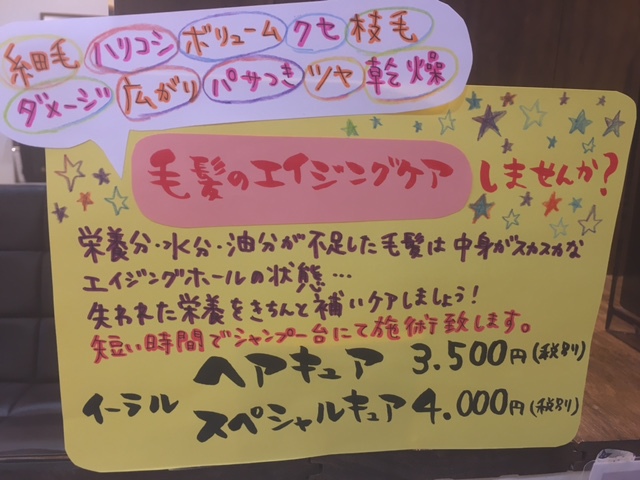 細毛 ハリコシ ボリューム クセ 枝毛
ダメージ 広がり パサつき ツヤ 乾燥
毛髪のエイジングケア しませんか?
栄養分・水分・油分が不足した毛髪は中身がスカスカな
エイジングホールの状態…
失われた栄養をきちんと補いケアしましょう!
短い時間でシャンプー台にて施術致します。
ヘアキュア 3.500円(税別)
イーラル スペシャルキュア 4.000円(税別)